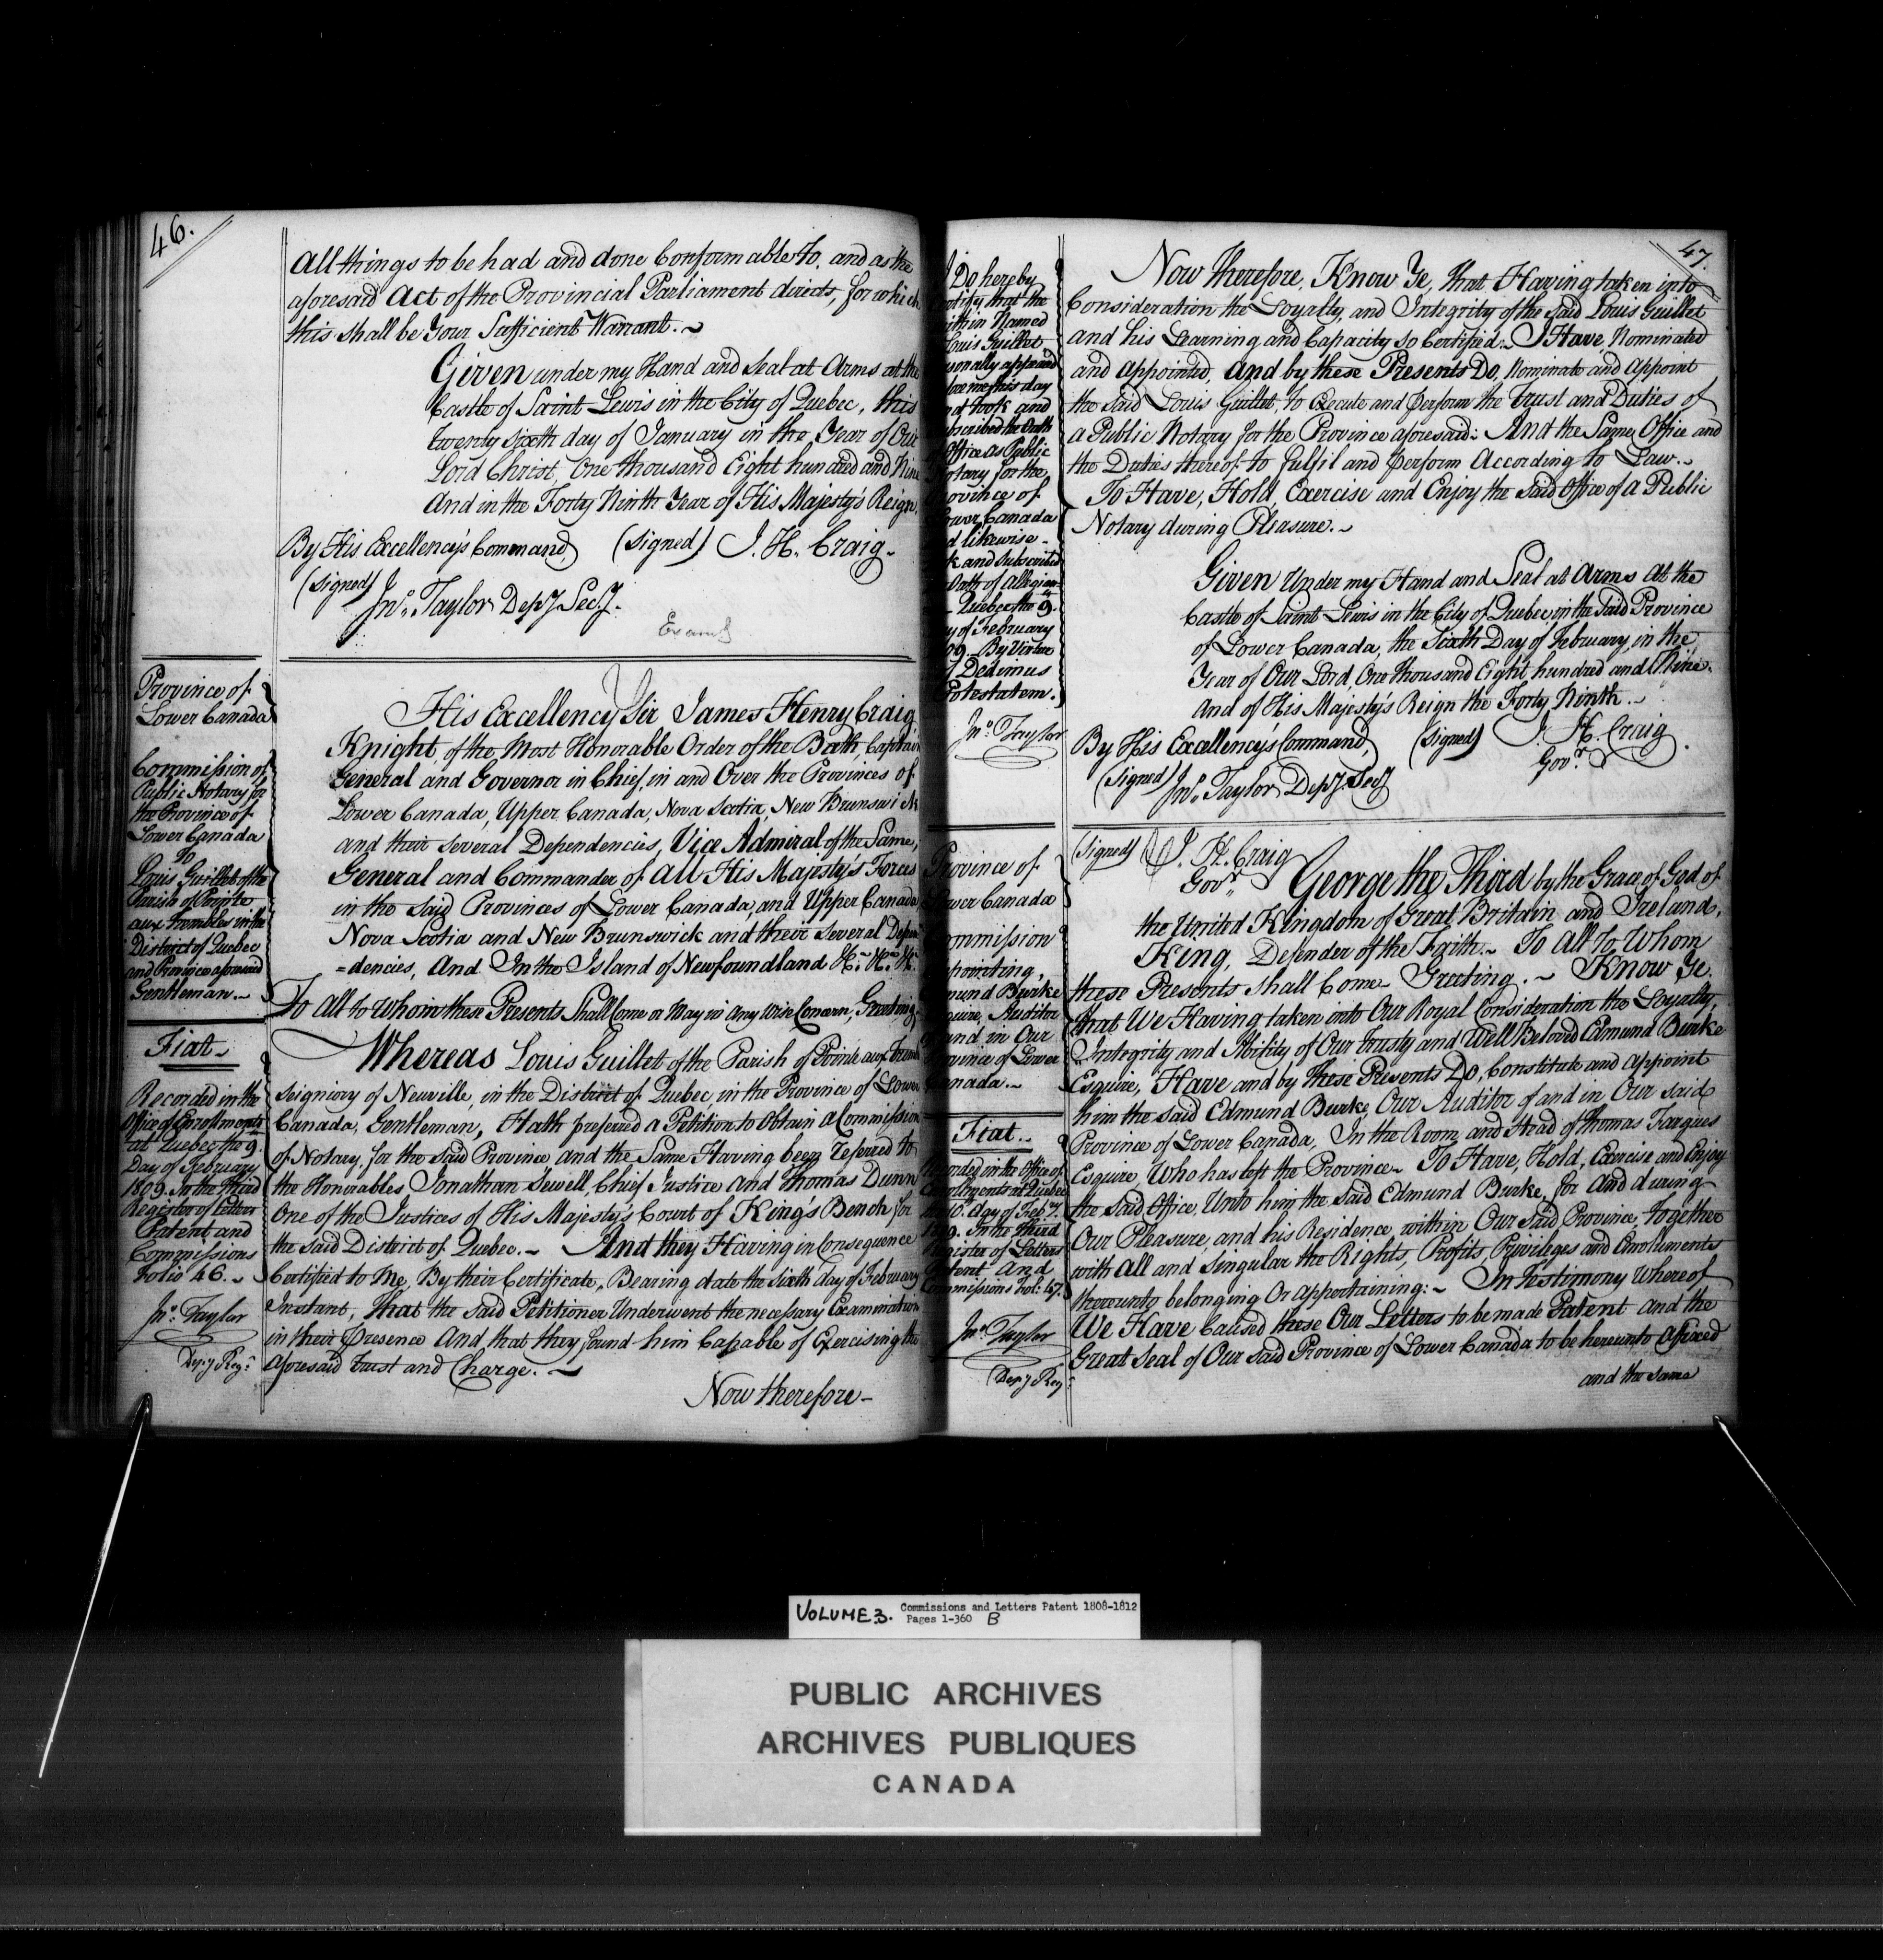 46.
All things to be had and done Conformable to, and as the
aforesaid Act of the Provincial Parliament directs, for which
this shall be Your Sufficient Warrant.~
Given under my Hand and Seal at Arms at the
Castle of Saint Lewis in the City of Quebec, this
twenty Sixth day of January in the Year of Our
Lord Christ, One thousand Eight hundred and Nine
And in the Forty Ninth Year of His Majesty's Reign.
By His Excellency's Command, (Signed) J. H. Craig.
(Signed) Jno. Taylor Depy. Secy.
Examd
Province of
Lower Canada
Commission of
Public Notary for
the Province of
Lower Canada
to
Louis Guillet of the
Parish of Pointe
aux Trembles in the
District of Quebec
and Province aforesaid
Gentleman.~
Fiat~
Recorded in the
Office of Enrollments
at Quebec the 9.
Day of February
1809. In the Third
Register of Letters
Patent and
Commissions
Folio 46.~
Jno. Taylor
Depy Reg:
His Excellency Sir James Henry Craig
Knight, of the Most Honorable Order of the Bath, Captain
General and Governor in Chief, in and Over the Provinces of
Lower Canada, Upper Canada, Nova Scotia, New Brunswick
and their Several Dependencies, Vice Admiral of the Same,
General and Commander of All His Majesty's Forces
in the said Provinces of Lower Canada, and Upper Canada,
Nova Scotia and New Brunswick and their Several Depen
=dencies, And In the Island of Newfoundland &c. &c. &c.
To All to Whom these Presents Shall Come or May in Any Wise Concern, Greeting,
Whereas Louis Guillet of the Parish of Pointe aux Trembles
Seigniory of Neuville, in the District of Quebec, in the Province of Lower
Canada, Gentleman, Hath preferred a Petition to Obtain a Commission
of Notary, for the said Province, and the Same Having been referred to
the Honorables Jonathan Sewell, Chief Justice and Thomas Dunn
One of the Justices of His Majesty's Court of King's Bench for
the said District of Quebec.~ And they Having in Consequence
Certified to Me, By their Certificate, Bearing date the Sixth day of February
Instant, That the said Petitioner Underwent the necessary Examination
in their Presence And that they found him Capable of Exercising the
aforesaid trust and Charge.~
Now therefore~
47.
I Do hereby
that the
within Named
Louis Guillet
personally appeared
before me this day
and took and
subscribed the Oath
of Office as Public
Notary for the
Province of
Lower Canada
and likewise
and Subscribed
Oath of Allegian
Quebec the 9.
day of February
By Virtue
Dedimus
Potestatem.
Jno. Taylor
Now Therefore, Know Ye, that Having taken into
Consideration the Loyalty, and Integrity of the said Louis Guillet
and his Learning and Capacity so Certified:~ I Have Nominated
and Appointed, and by these Presents Do, Nominate and Appoint
the said Louis Guillet, to Execute and Perform the Trust and Duties of
a Public Notary for the Province aforesaid: And the Same Office and
the Duties thereof to fulfil and Perform According to Law.~
To Have, Hold, Exercise and Enjoy the said Office of a Public
Notary during Pleasure.~
Given Under my Hand and Seal at Arms at the
Castle of Saint Lewis in the City of Quebec, in the said Province
of Lower Canada, the Sixth Day of February, in the
Year of Our Lord One thousand Eight hundred and Nine.
And of His Majesty's Reign the Forty Ninth.~
By His Excellency's Command, (Signed) J. H. Craig
Govr.
(Signed) Jno. Taylor Depy. Secy
Province of
Lower Canada
Commission
appointing,
Edmund Burke
Esquire, Auditor
of and in Our
Province of Lower
Canada.~
Fiat~
Recorded in the Office of
Enrollments at Quebec
the 10. day of Feby.
1809. In the Third
Register of Letters
Patent And
Commissions Fol: 47.
Jno. Taylor
Depy Reg:
(Signed) J. H. Craig
Govr.
George the Third by the Grace of God of
the United Kingdom of Great Britain and Ireland,
King, Defender of the Faith.~ To All to Whom
these Presents shall Come~ Greeting.~ Know Ye,
that We Having taken into Our Royal Consideration the Loyalty,
Integrity and Ability of Our Trusty and Well Beloved Edmund Burke
Esquire, Have and by these Presents Do, Constitute and Appoint
him the said Edmund Burke, Our Auditor of and in Our said
Province of Lower Canada, In the Room and Stead of Thomas Fargues
Esquire, Who has left the Province~ To Have, Hold, Exercise and Enjoy
the said Office, Unto him the said Edmund Burke, for And during
Our Pleasure, and his Residence within Our said Province, Together
with All and Singular the Rights, Profits, Privileges and Emoluments
thereunto belonging Or appertaining:~ In Testimony Whereof
We Have Caused these Our Letters to be made Patent and the
Great Seal of Our said Province of Lower Canada to be hereunto Affixed
and the same
VOLUME 3. Commissions and Letters Patent 1808-1812
Pages 1-360 B
PUBLIC ARCHIVES
ARCHIVES PUBLIQUES
CANADA